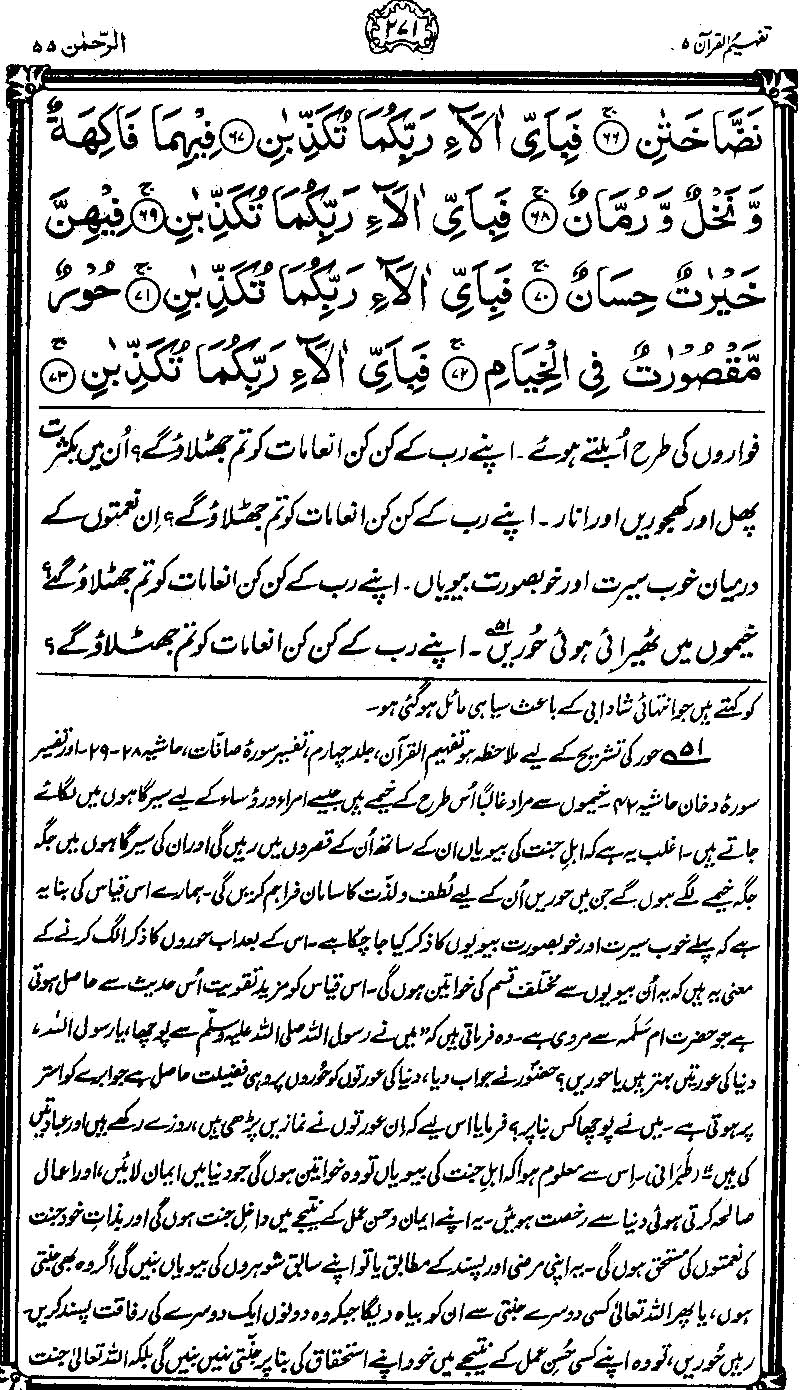 تفہیم القرآن ۵
۲۷۱
الرّحمٰن ۵۵
نَضَّاخَتٰنِ ﴿۶۶﴾ فَبِاَیِّ اٰلَآءِ رَبِّکُمَا تُکَذِّبٰنِ ﴿۶۷﴾ فِیْہِمَا فَاکِہَۃٌ
وَّ نَخْلٌ وَّ رُمَّانٌ ﴿۶۸﴾ فَبِاَیِّ اٰلَآءِ رَبِّکُمَا تُکَذِّبٰنِ ﴿۶۹﴾ فِیْہِنَّ
خَیْرٰتٌ حِسَانٌ ﴿۷۰﴾ فَبِاَیِّ اٰلَآءِ رَبِّکُمَا تُکَذِّبٰنِ ﴿۷۱﴾ حُوْرٌ
مَّقْصُوْرٰتٌ فِی الْخِیَامِ ﴿۷۲﴾ فَبِاَیِّ اٰلَآءِ رَبِّکُمَا تُکَذِّبٰنِ ﴿۷۳﴾
فواروں کی طرح اُبلتے ہوئے۔ اپنے رب کے کن کن انعامات کو تم جھٹلاؤ گے؟ اُن میں بکثرت
پھل اور کھجوریں اور انار۔ اپنے رب کے کن کن انعامات کو تم جھٹلاؤ گے؟ اِن نعمتوں کے
درمیان خوب سیرت اور خوبصورت بیویاں۔ اپنے رب کے کن کن انعامات کو تم جھٹلاؤ گے؟
خیموں میں ٹھیرائی ہوئی حُوریں۵۱۔ اپنے رب کے کن کن انعامات کو تم جھٹلاؤ گے؟
کو کہتے ہیں جو انتہائی شادابی کے باعث سیاہی مائل ہو گئی ہو۔
۵۱ حور کی تشریح کے لیے ملاحظہ ہو تفہیم القرآن، جلد چہارم، تفسیر سورۂ صافّات، حاشیہ ۲۸-۲۹۔ اور تفسیر
سورۂ دخان حاشیہ ۴۲۔ خیموں سے مراد غالباً اُس طرح کے خیمے ہیں جیسے امراء و رؤساء کے لیے سیرگاہوں میں لگائے
جاتے ہیں۔ اغلب یہ ہے کہ اہلِ جنت کی بیویاں ان کے ساتھ اُن کے قصروں میں رہیں گی اور ان کی سیرگاہوں میں جگہ
جگہ خیمے لگے ہوں گے جن میں حوریں اُن کے لیے لُطف و لذّت کا سامان فراہم کریں گی۔ ہمارے اس قیاس کی بنا یہ
ہے کہ پہلے خوب سیرت اور خوبصورت بیویوں کا ذکر کیا جا چکا ہے۔ اس کے بعد اب حوروں کا ذکر الگ کرنے کے
معنی یہ ہیں کہ یہ اُن بیویوں سے مختلف قسم کی خواتین ہوں گی۔ اس قیاس کو مزید تقویت اُس حدیث سے حاصل ہوتی
ہے جو حضرت ام سَلَمہ سے مروی ہے۔ وہ فرماتی ہیں کہ "میں نے رسول اللہ صلی اللہ علیہ وسلّم سے پوچھا، یا رسول اللہ،
دنیا کی عورتیں بہتر ہیں یا حوریں؟ حضورؐ نے جواب دیا، دنیا کی عورتوں کو حُوروں پر وہی فضیلت حاصل ہے جو ابرے کو استر
پر ہوتی ہے۔ میں نے پوچھا کس بنا پر؟ فرمایا اس لیے کہ اِن عورتوں نے نمازیں پڑھی ہیں، روزے رکھے ہیں اور عبادتیں
کی ہیں" (طَبَرانی)۔ اِس سے معلوم ہوا کہ اہل جنت کی بیویاں تو وہ خواتین ہوں گی جو دنیا میں ایمان لائیں، اور اعمال
صالحہ کرتی ہوئی دنیا سے رخصت ہوئیں۔ یہ اپنے ایمان و حسن عمل کے نتیجے میں داخلِ جنت ہوں گی اور بذاتِ خود جنت
کی نعمتوں کی مستحق ہوں گی۔ یہ اپنی مرضی اور پسند کے مطابق یا تو اپنے سابق شوہروں کی بیویاں بنیں گی اگر وہ بھی جنتی
ہوں، یا پھر اللہ تعالیٰ کسی دوسرے جنتی سے ان کو بیاہ دیگا جبکہ وہ دونوں ایک دوسرے کی رفاقت پسند کریں۔
رہیں حُوریں، تو وہ اپنے کسی حُسنِ عمل کے نتیجے میں خود اپنے استحقاق کی بنا پر جنّتی نہیں بنیں گی بلکہ اللہ تعالیٰ جنت